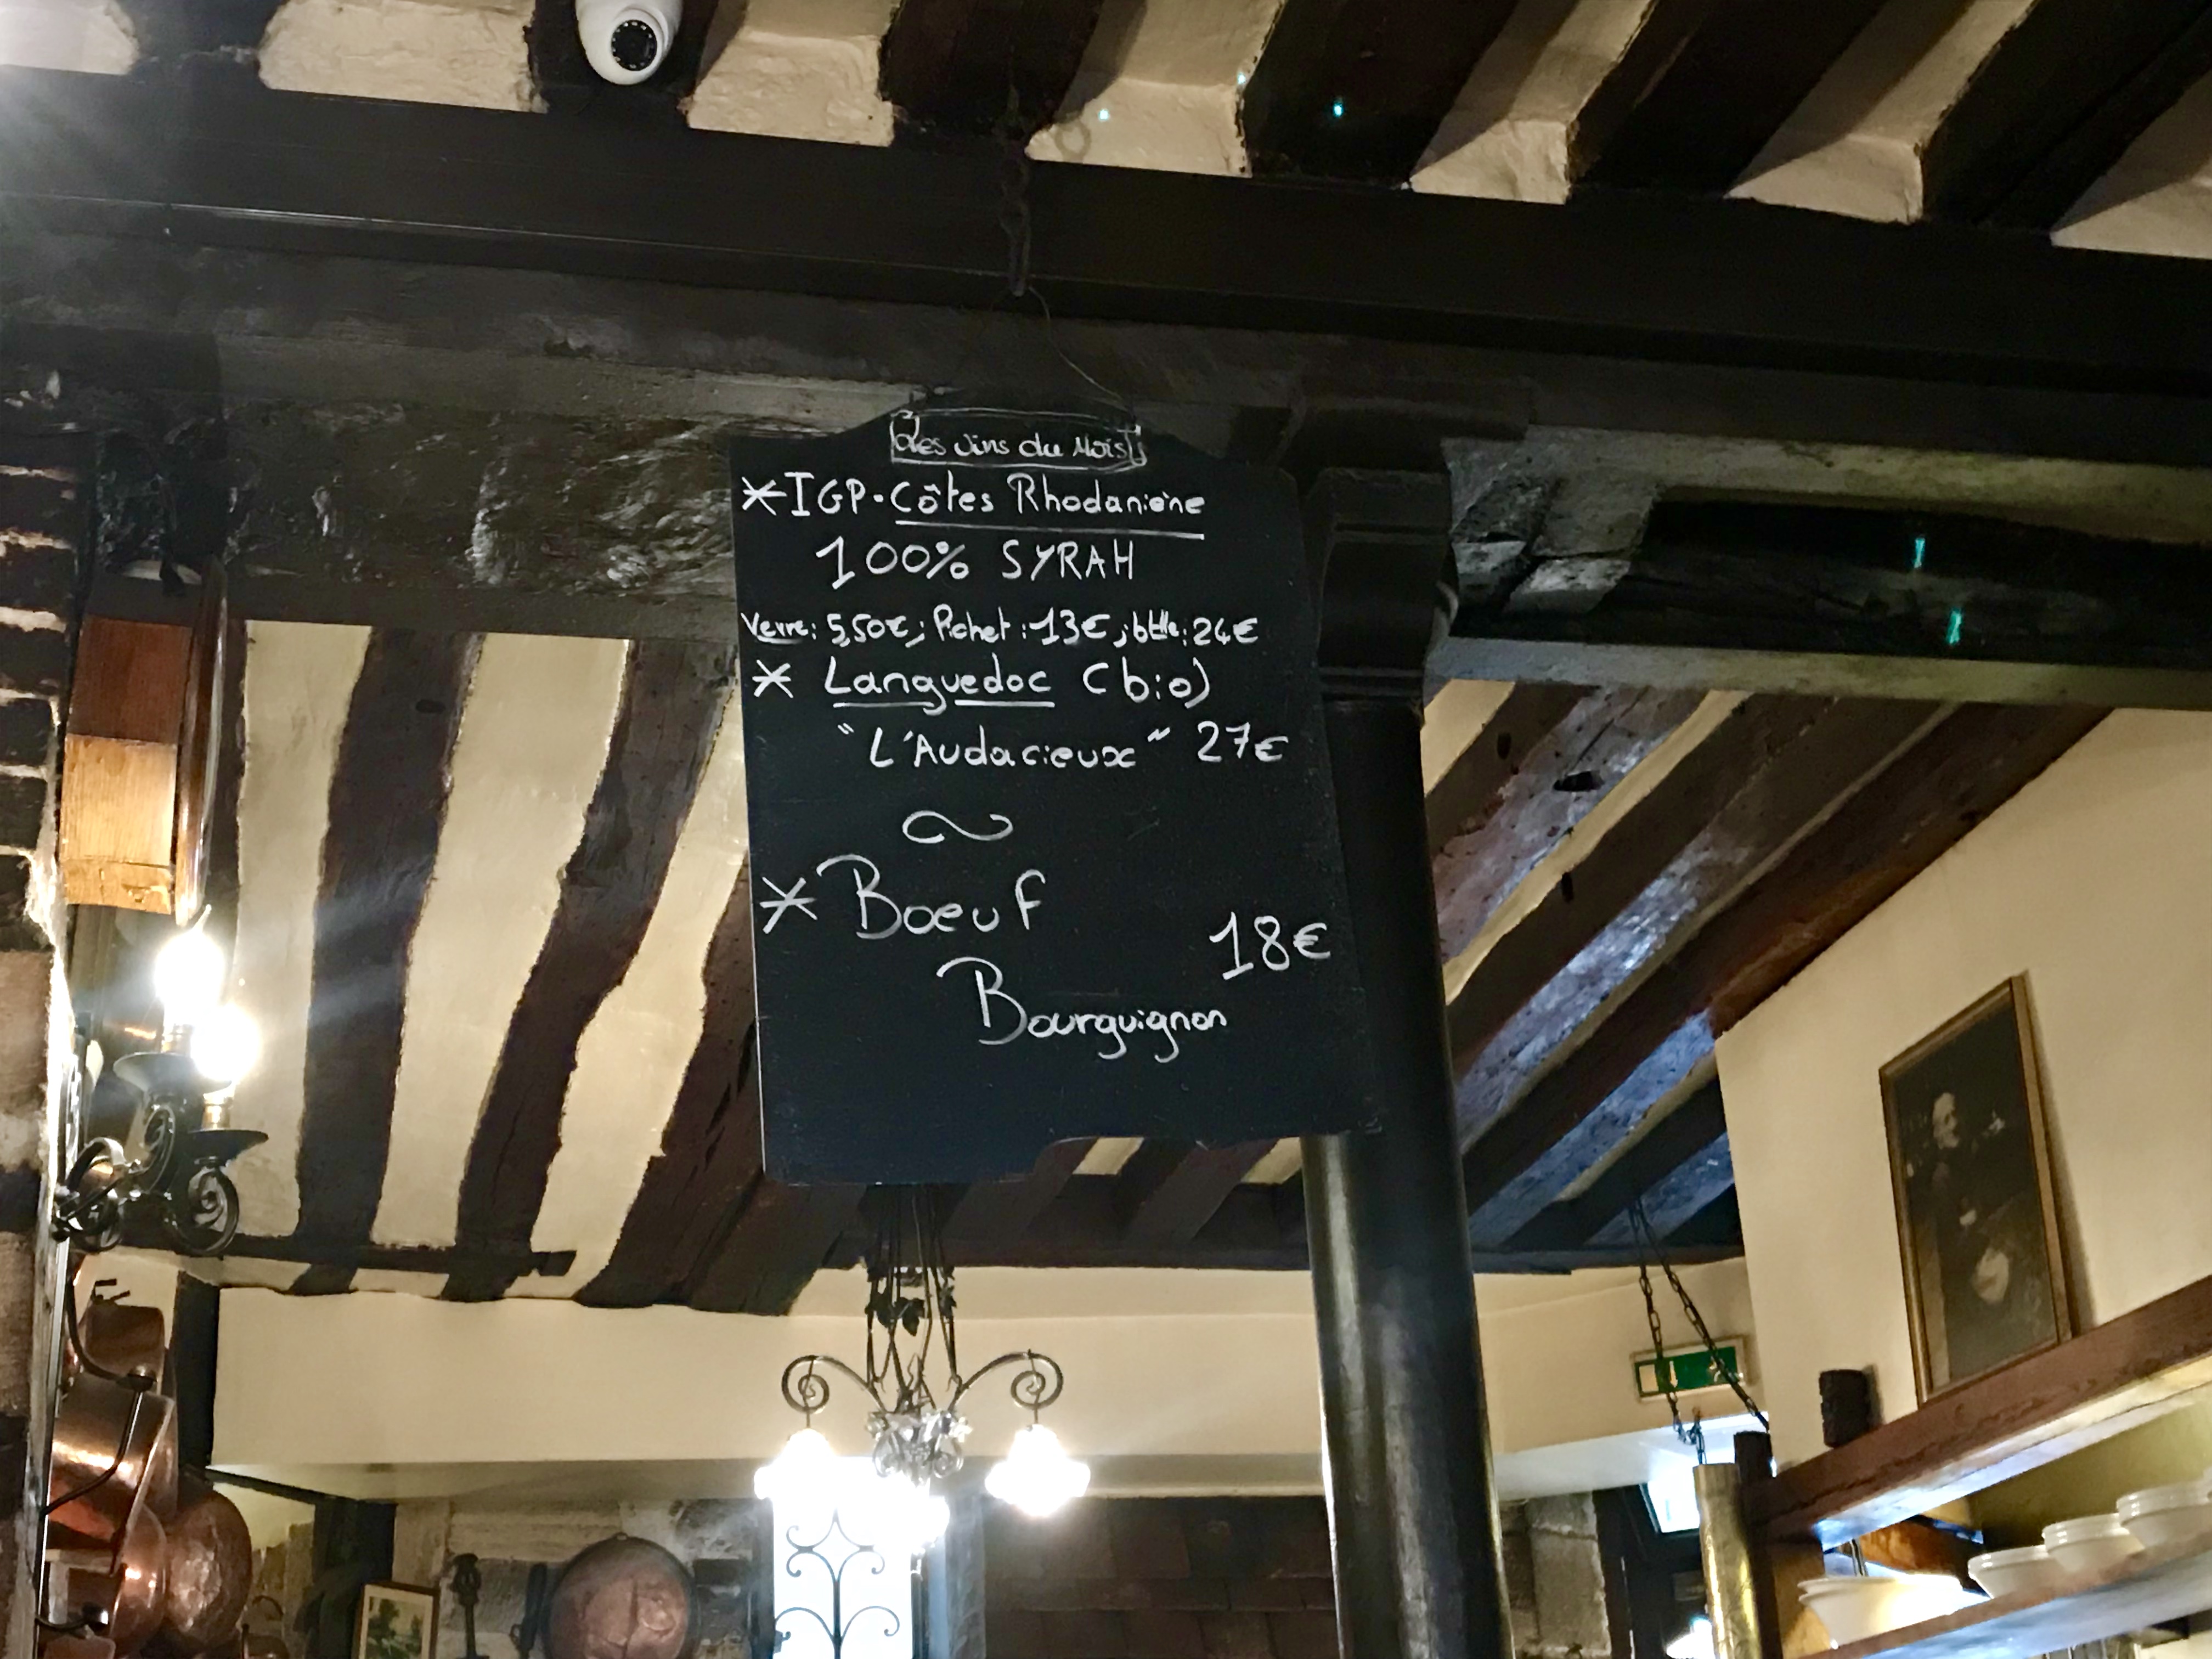 Les vins du Mois
*IGP-Côtes Rhodaniène
100% SYRAH
Verre: 5,50€; Pichet: 13€; btlle: 24€
* Languedoc (bio)
"L'Audacieux" 27€
* Boeuf
18€
Bourguignon